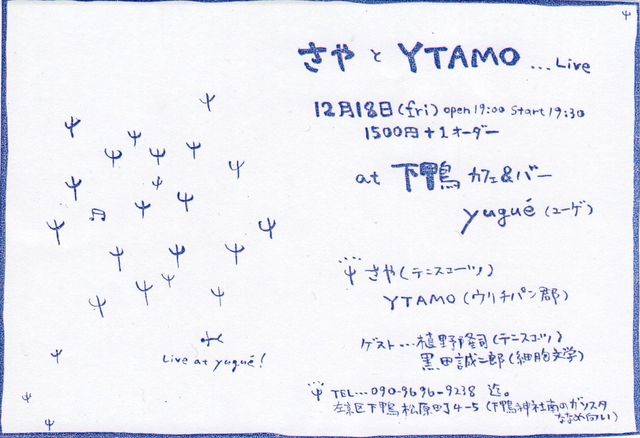 さや と YTAMO ... Live
12月18日(fri) open 19:00 Start 19:30
1500円+1オーダー
at 下鴨 カフェ&バー
yugué (ユーゲ)
さや(テニスコーツ)
YTAMO(ウリチパン郡)
ゲスト...植野隆司(テニスコーツ)
黒田誠二郎(細胞文学)
Live at yugué!
TEL... 090-9696-9238 迄。
左京区下鴨松原町4-5(下鴨神社南のガソスタ
ななめ向い)